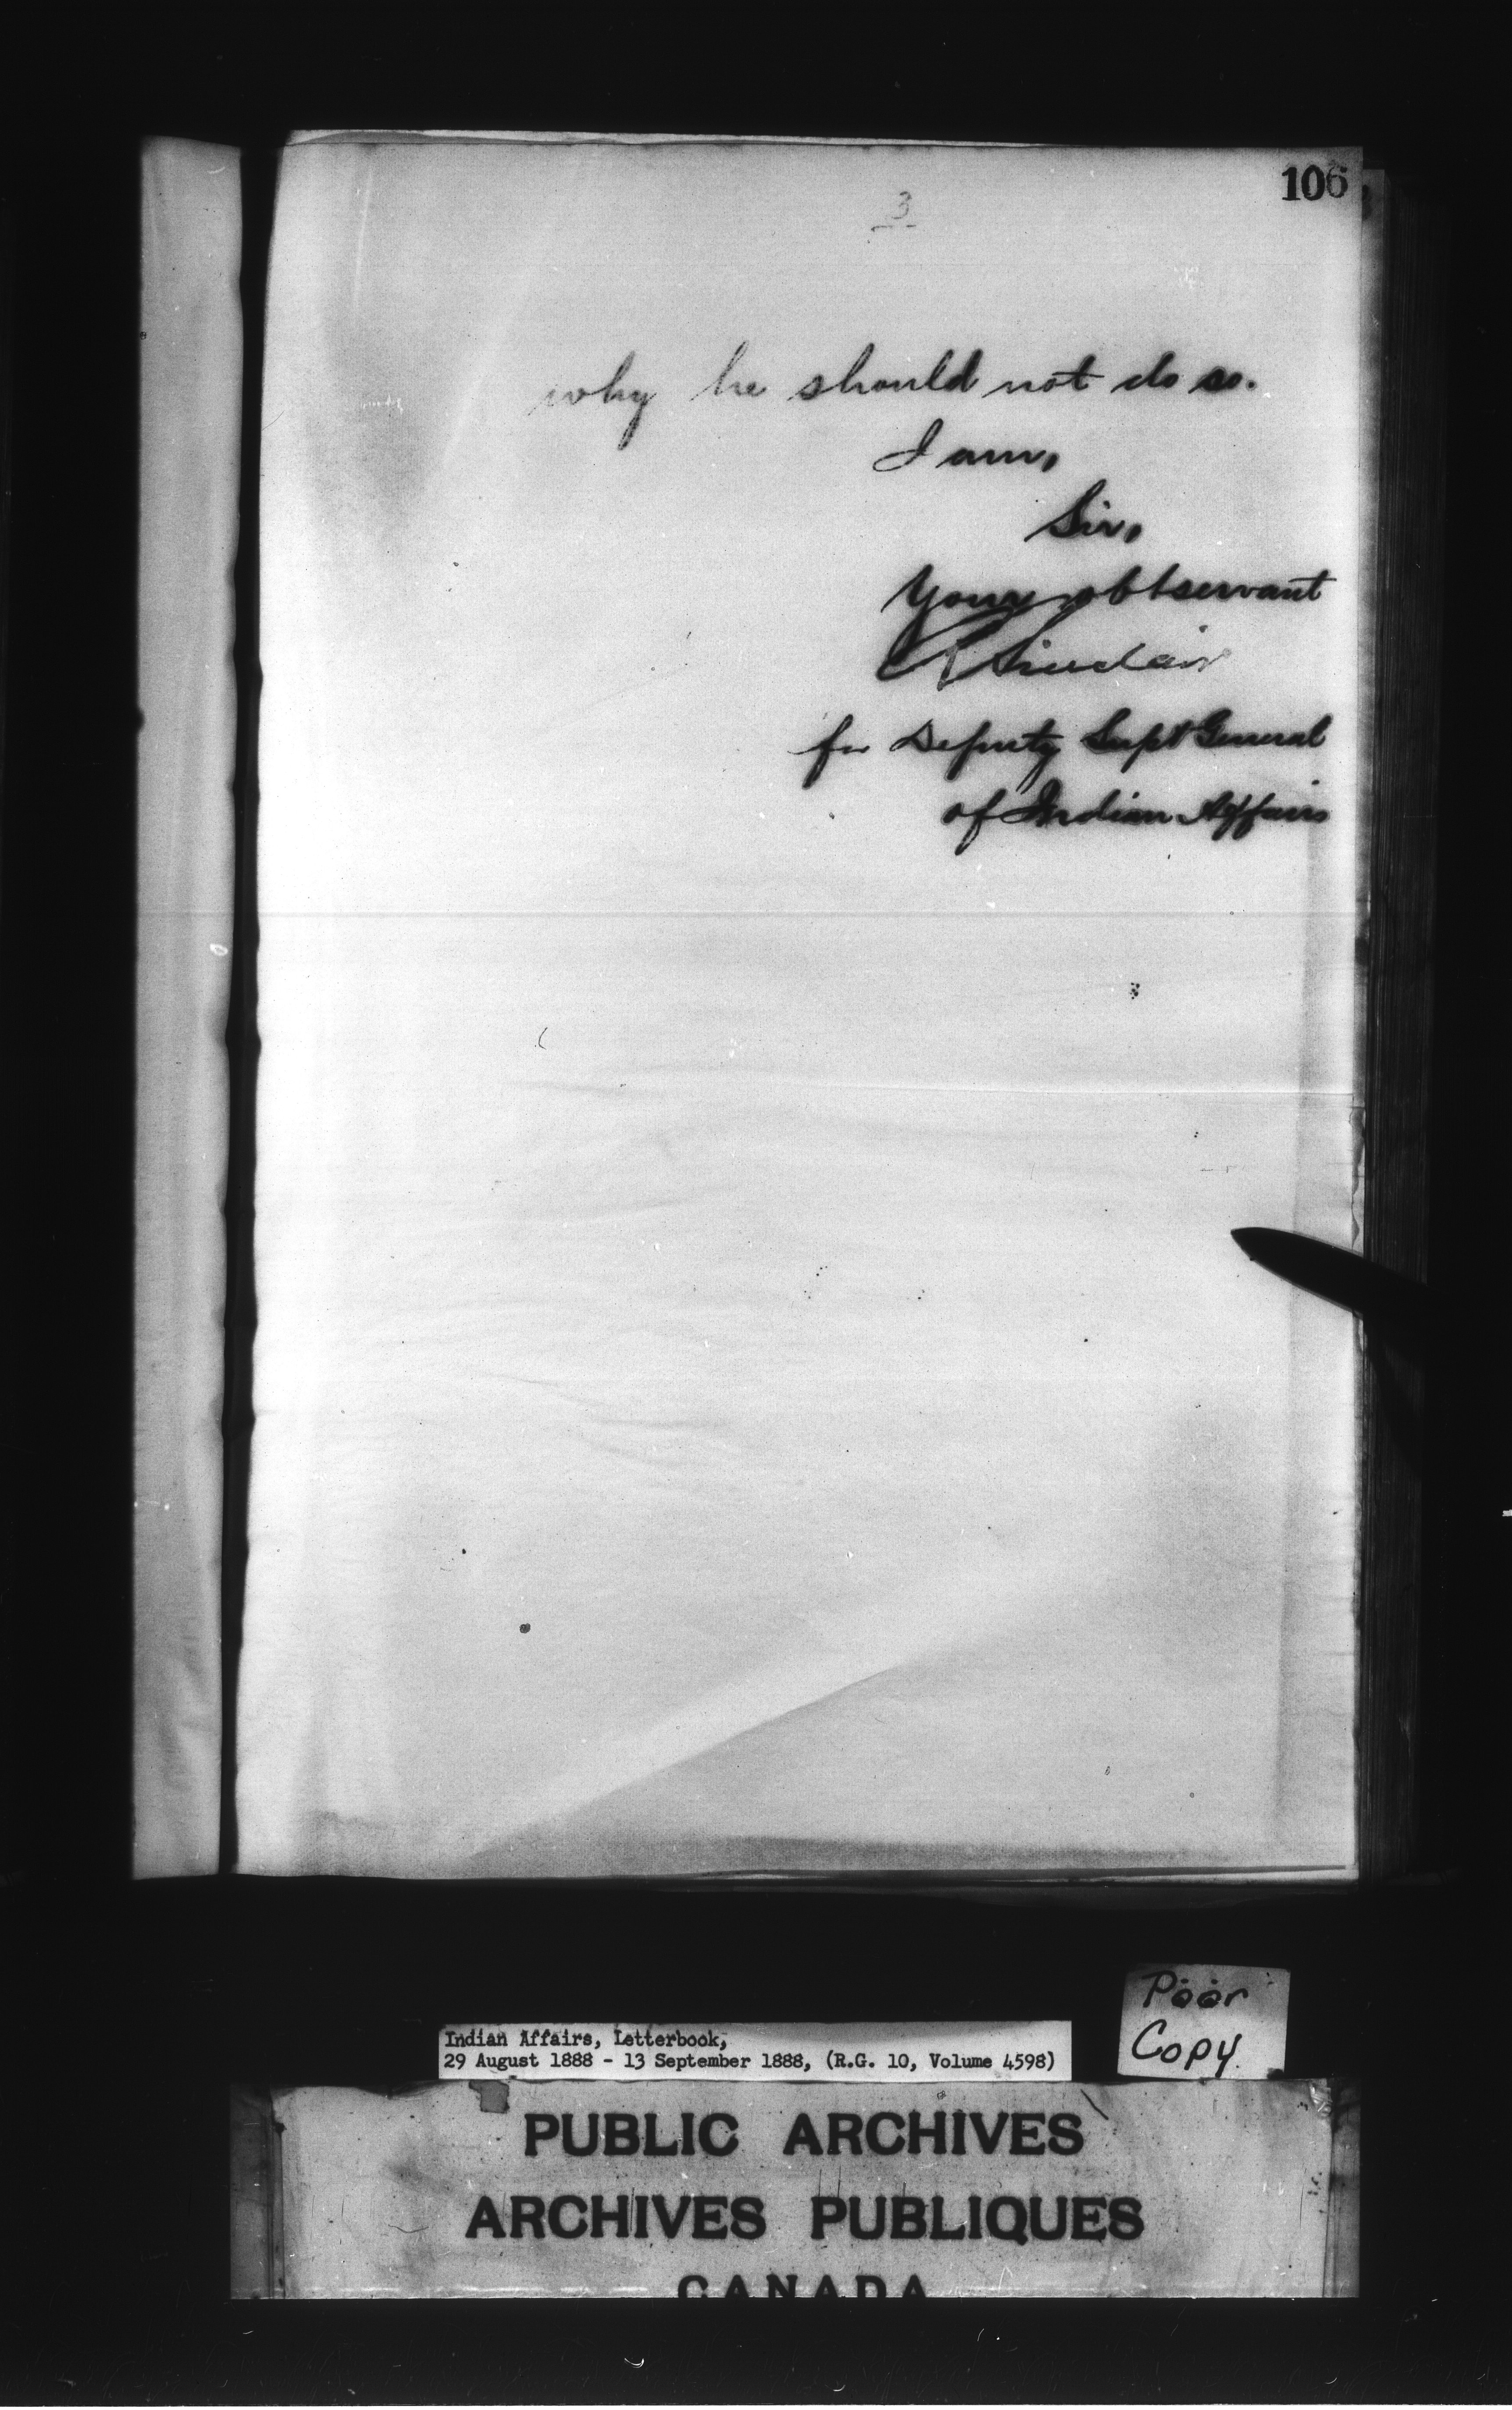 106
3
why he should not do so.
I am,
Sir,
Your obt servant
R Sinclair
for Deputy Supt General
of Indian Affairs
Poor
Copy.
Indian Affairs, Letterbook,
29 August 1888 - 13 September 1888, (R.G. 10, Volume 4598)
PUBLIC ARCHIVES
ARCHIVES PUBLIQUES
CANADA